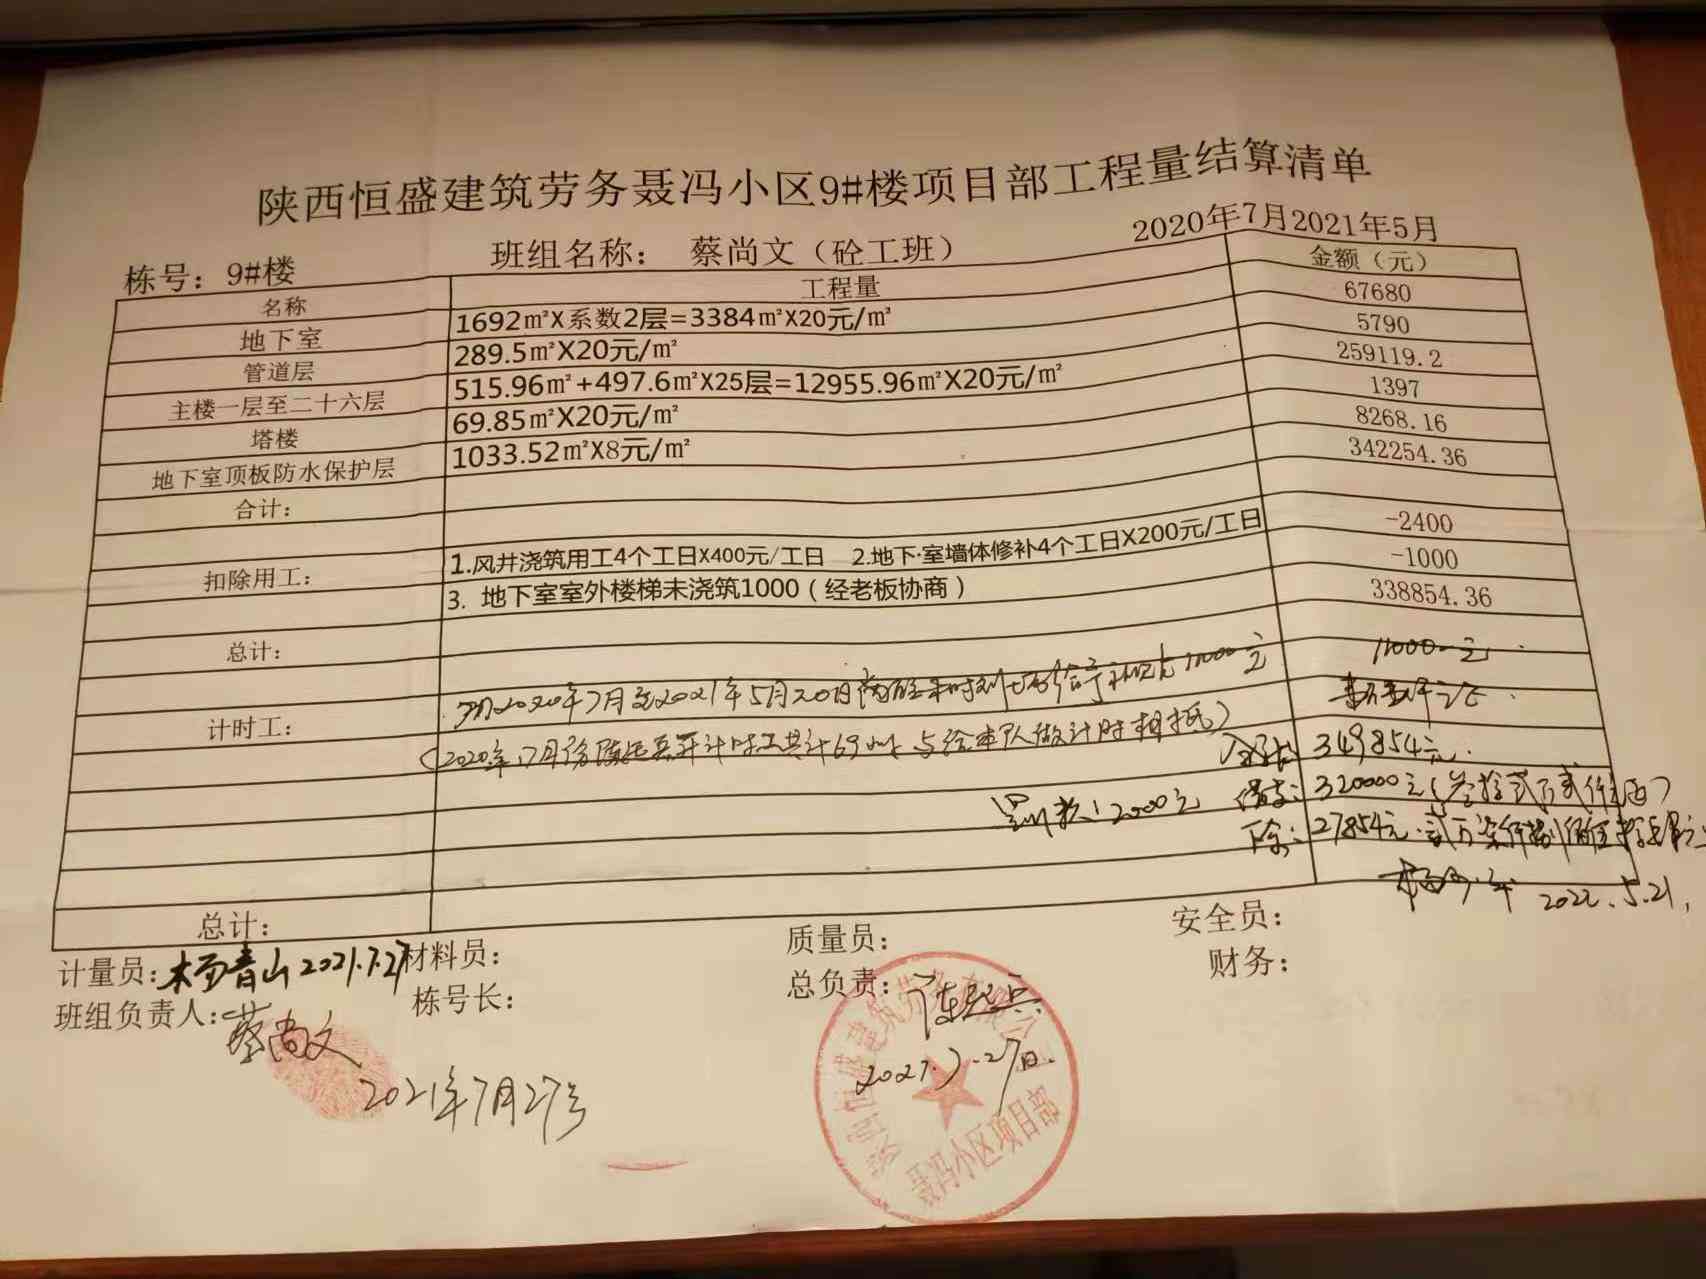 陕西恒盛建筑劳务聂冯小区9#楼项目部工程量结算清单
栋号：9#楼 班组名称： 蔡尚文（砼工班） 2020年7月2021年5月
名称 工程量 金额（元）
地下室 1692㎡X系数2层=3384㎡X20元/㎡ 67680
管道层 289.5㎡X20元/㎡ 5790
主楼一层至二十六层 515.96㎡+497.6㎡X25层=12955.96㎡X20元/㎡ 259119.2
塔楼 69.85㎡X20元/㎡ 1397
地下室顶板防水保护层 1033.52㎡X8元/㎡ 8268.16
合计： 342254.36
扣除用工： 1.风井浇筑用工4个工日X400元/工日 2.地下·室墙体修补4个工日X200元/工日 -2400
3. 地下室室外楼梯未浇筑1000（经老板协商） -1000
总计： 338854.36
计时工： 2020年7月至2021年5月20日 11000元 11000元
（2020年7月份 计时工共计69 与给 队做计时相抵）
349854元.
12000元 借支：320000元（叁拾贰万贰仟元正）
下余：27854元.贰万柒仟捌佰伍拾肆元
2022.5.21.
总计：
计量员：杨青山2021.7.27 材料员： 质量员： 安全员：
班组负责人：蔡尚文 栋号长： 总负责： 财务：
2021年7月27号
2021.7.27日.
陕西恒盛建筑劳务有限公司
聂冯小区项目部